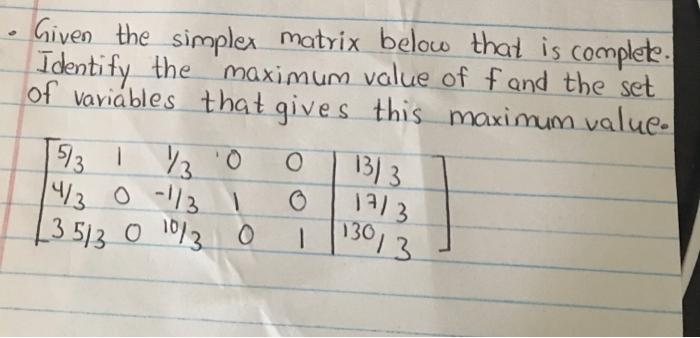 • Given the simplex matrix below that is complete.
Identify the maximum value of f and the set
of variables that gives this maximum value.
5/3 1 1/3 0 0 | 13/3
4/3 0 -1/3 1 0 | 17/3
35/3 0 10/3 0 1 | 130/3